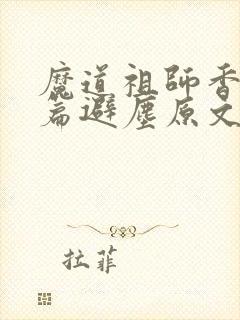 魔道祖師香
篇避塵原文
拉菲